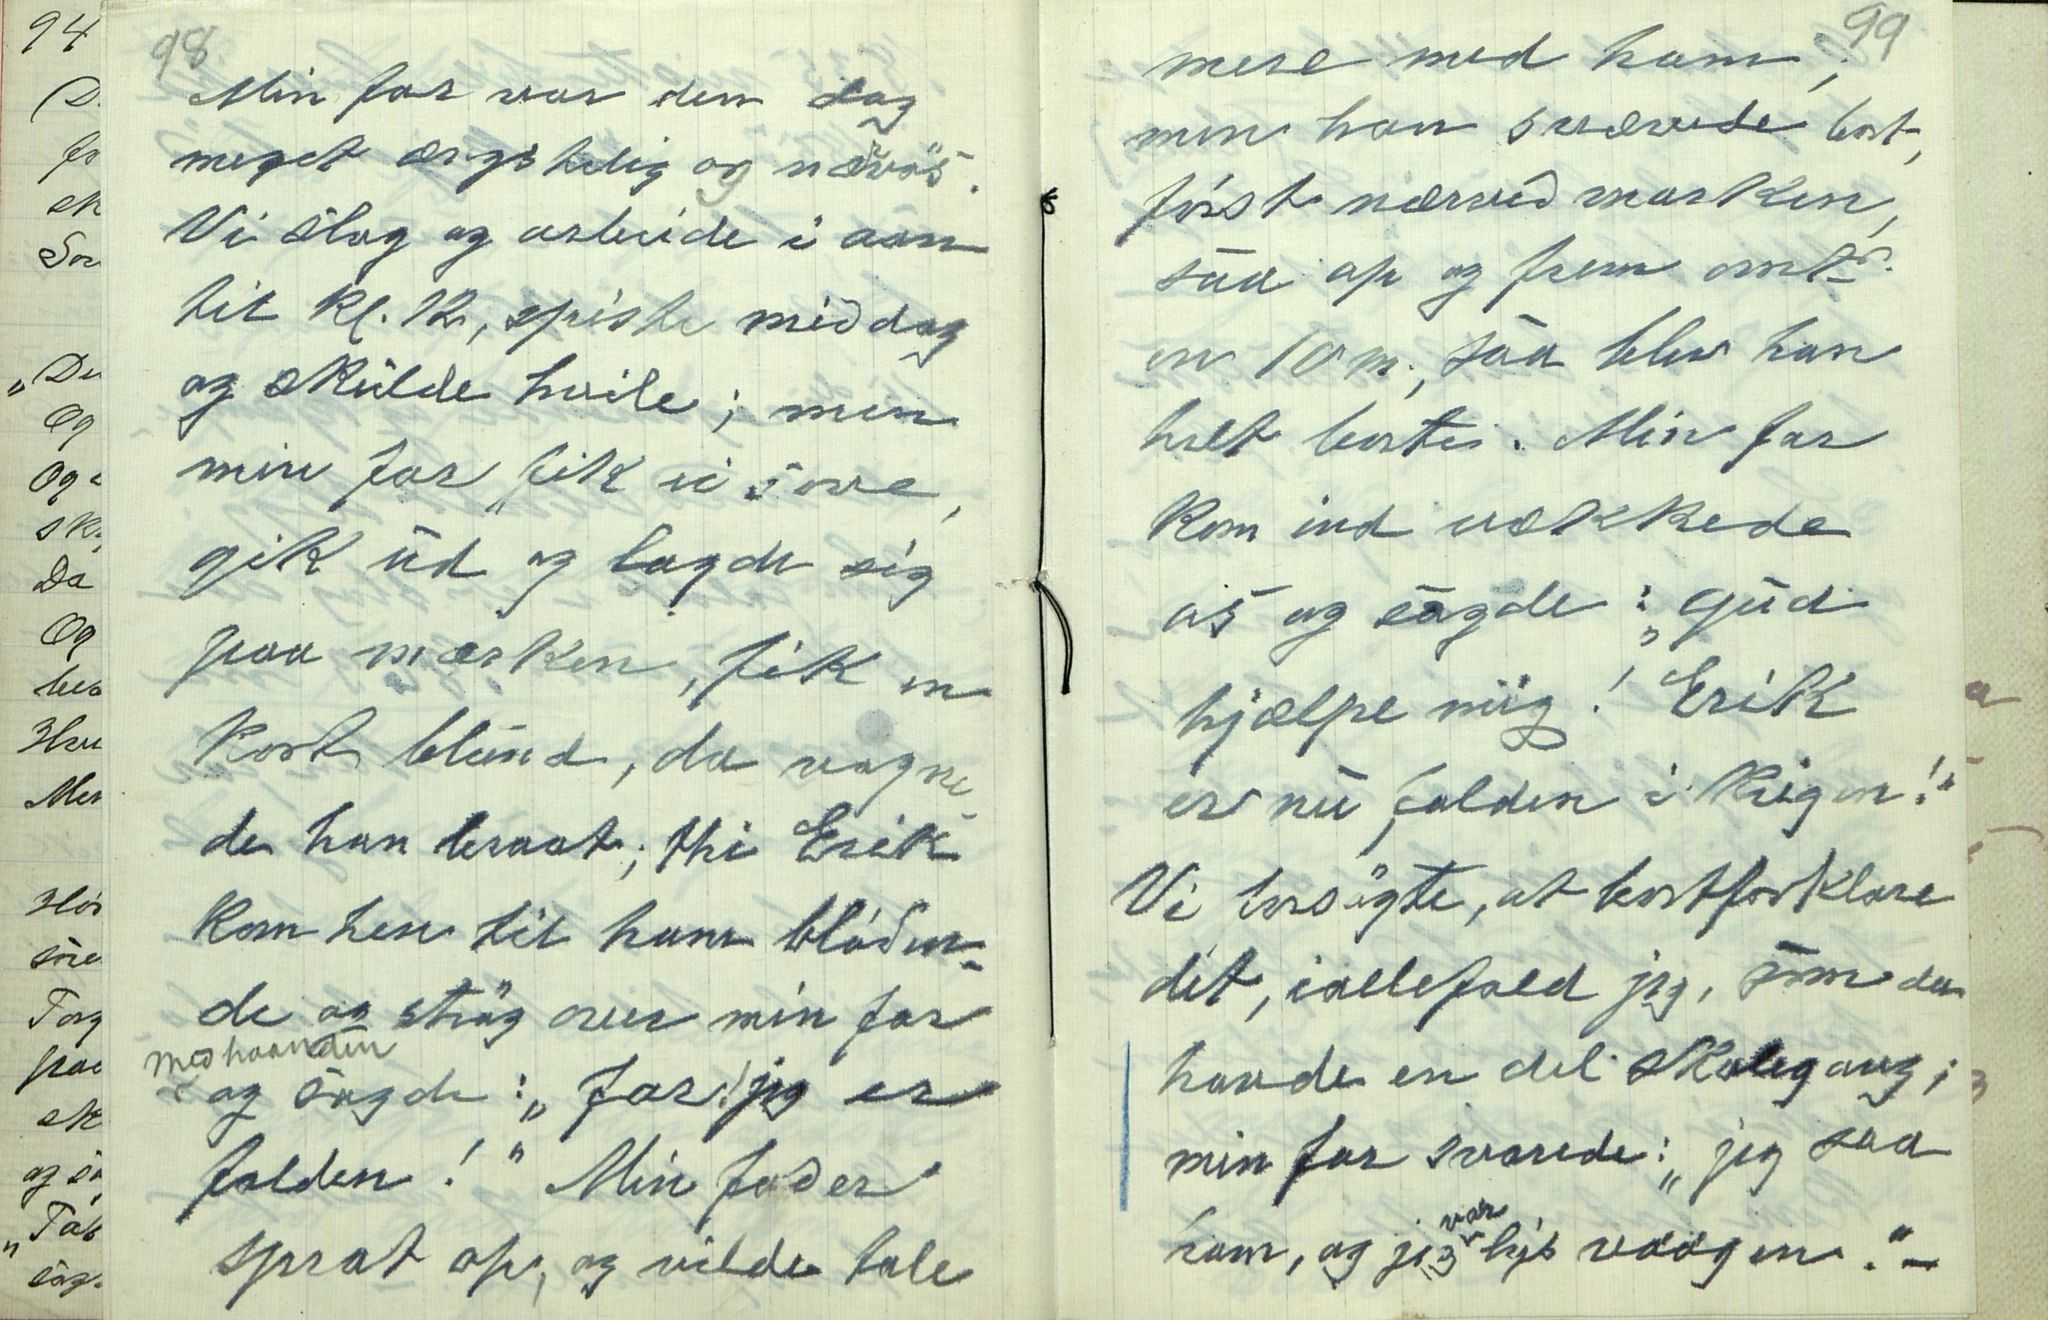 98
Min far var den dag
meget ængstelig og nærvøs.
Vi slog og arbeide i aan
til kl. 12, spiste middag
og skulde hvile; men
min far fik ei sove,
gik ud og lagde sig
paa marken, fik en
kort blund, da vagne
de han braat; thi Erik
kom hen til ham bløden-
de og strøg over min far
med haanden
og sagde: „far! jeg er
falden!" Min fader
sprat op, og vilde tale
99
mere med ham,
men han svævede bort,
først nærved marken,
saa op og frem omtr.
en 10 m., saa blev han
helt borte. Min far
kom ind vækkede
os og sagde: „Gud
hjælpe mig! Erik
er nu falden i krigen!"
Vi forsøgte, at bortforklare
det, iallefald jeg, som da
havde en del skolegang;
min far svarede: „jeg saa
ham, og jeg var lys vaagen." -
94
Og
Da
Og